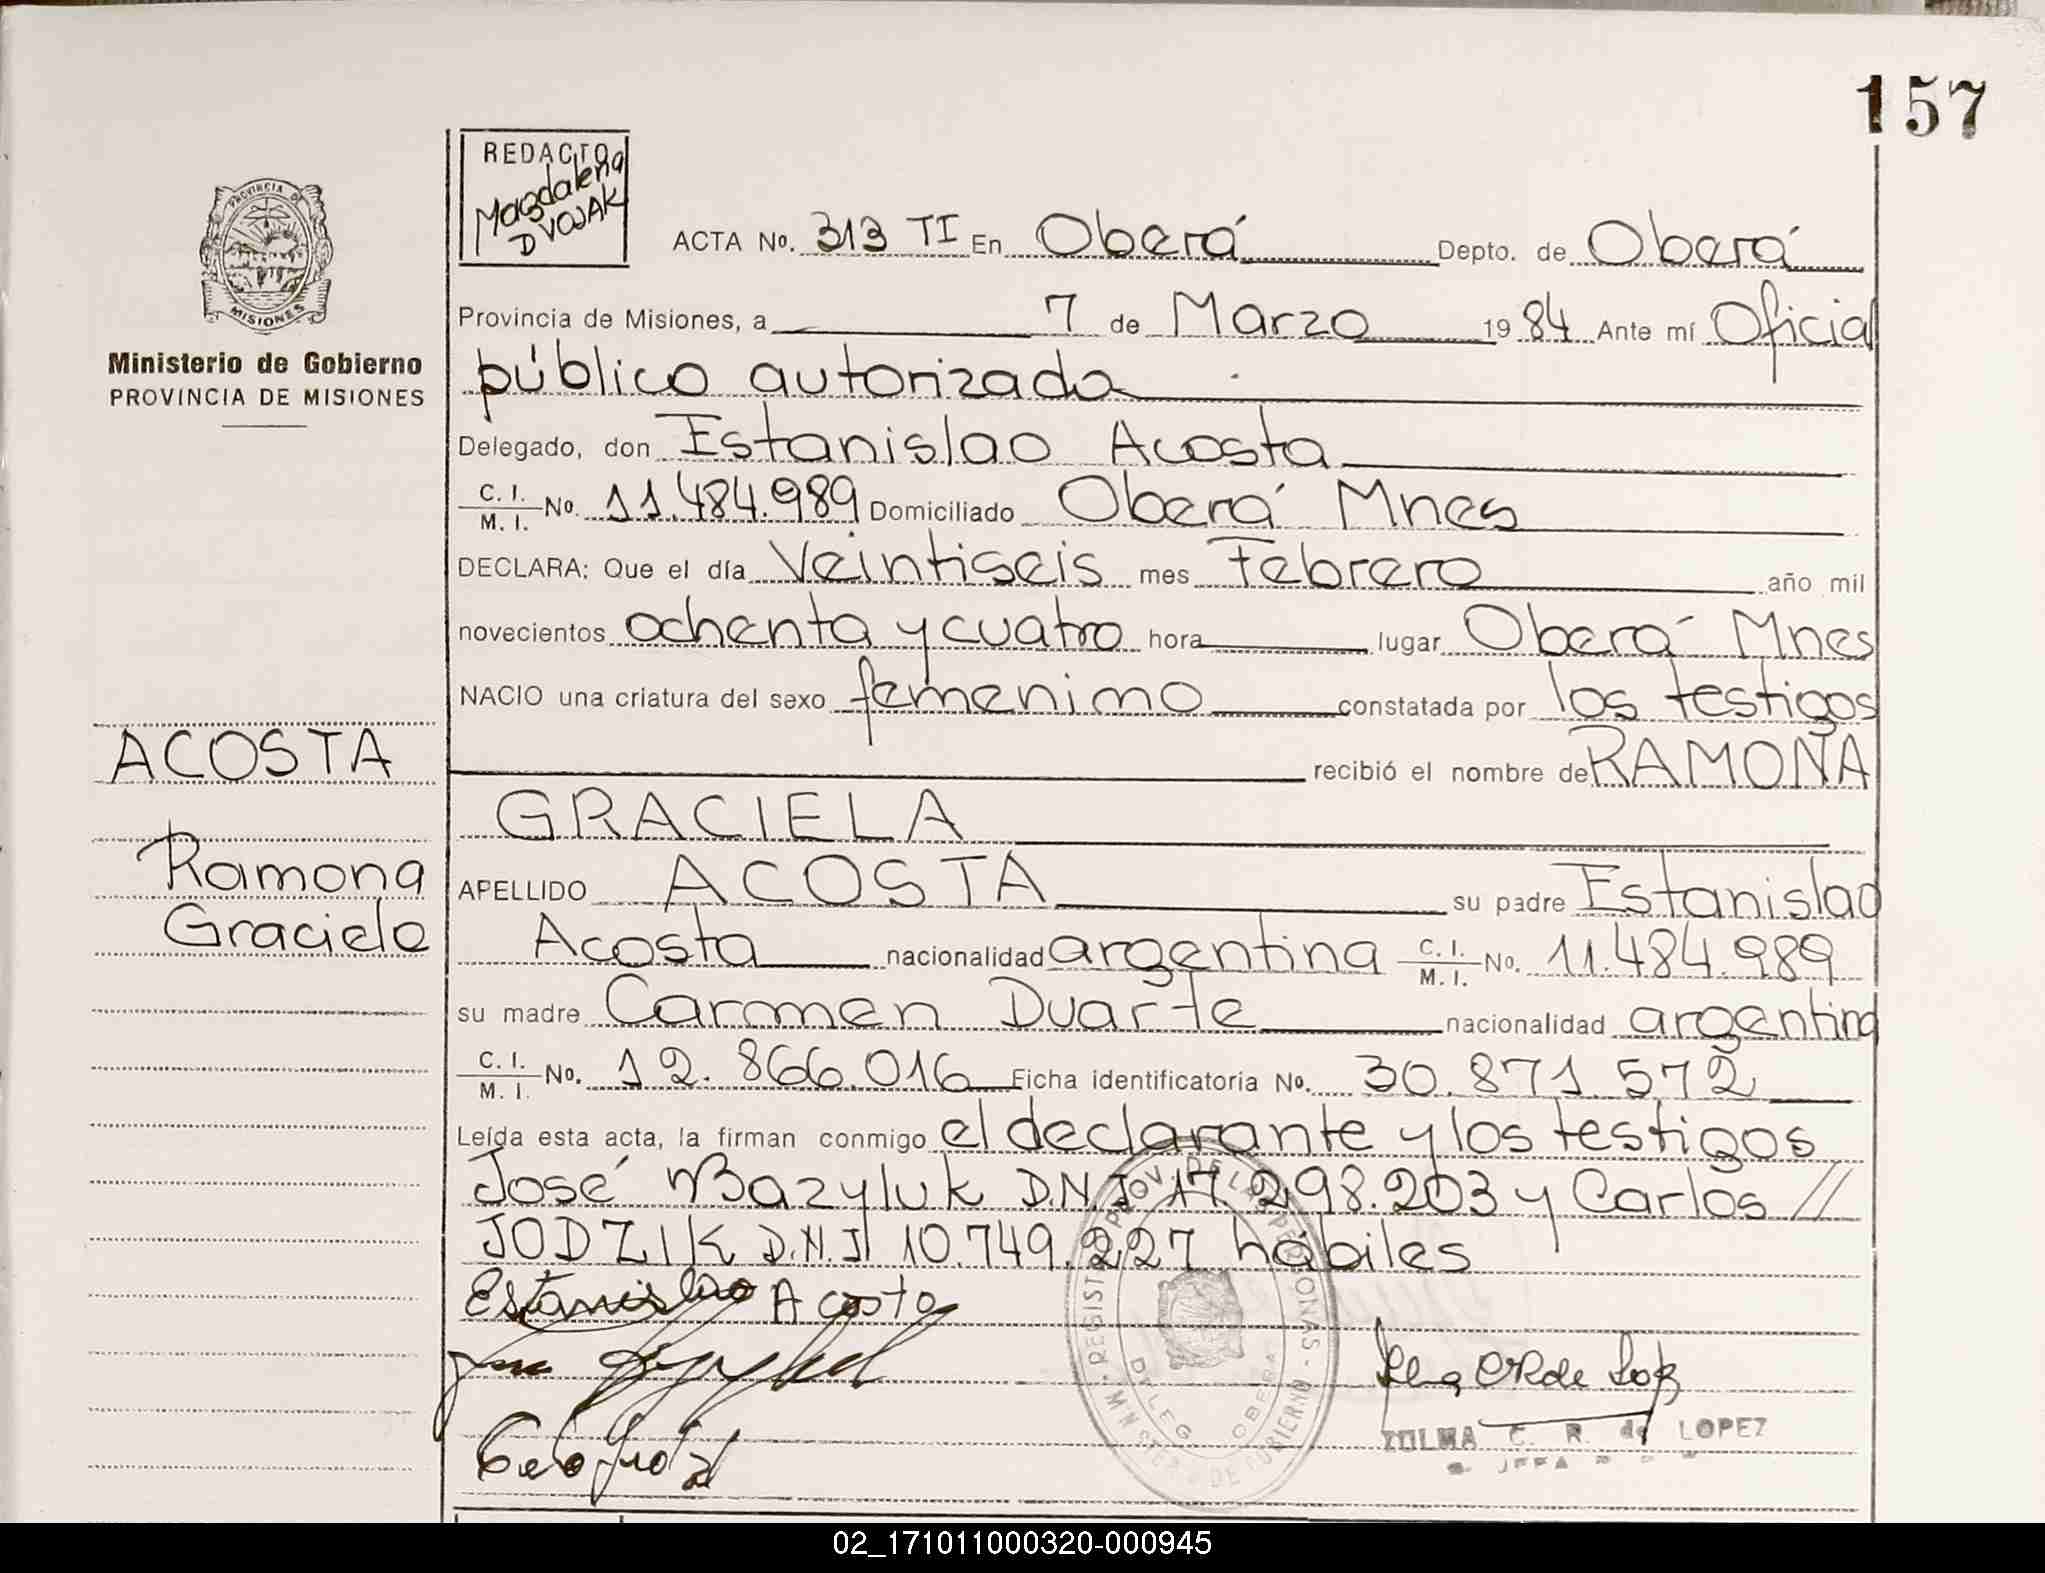 157
REDACTO
Magdalena
DVOJAK
PROVINCIA DE
MISIONES
Ministerio de Gobierno
PROVINCIA DE MISIONES
ACTA No. 313 TI En Oberá Depto. de Oberá
Provincia de Misiones, a 7 de Marzo 1984 Ante mí Oficial
público autorizada
Delegado, don Estanislao Acosta
C. I. M. I. No. 11.484.989 Domiciliado Oberá Mnes
DECLARA: Que el día Veintiseis mes Febrero año mil
novecientos ochenta y cuatro hora lugar Oberá Mnes
NACIO una criatura del sexo femenimo constatada por los testigos
recibió el nombre de RAMONA
GRACIELA
APELLIDO ACOSTA su padre Estanislao
Acosta nacionalidad argentina C. I. M. I. No. 11.484.989
su madre Carmen Duarte nacionalidad argentina
C. I. M. I. No. 12.866.016 Ficha identificatoria No. 30.871.572
Leída esta acta, la firman conmigo el declarante y los testigos
José Bazyluk D.N.I 17.298.203 y Carlos //
JODZIK D.N.I 10.749.227 hábiles
Estanislao Acosta
ZULMA C. R. de LOPEZ
JEFA
ACOSTA
Ramona
Graciela
02_171011000320-000945